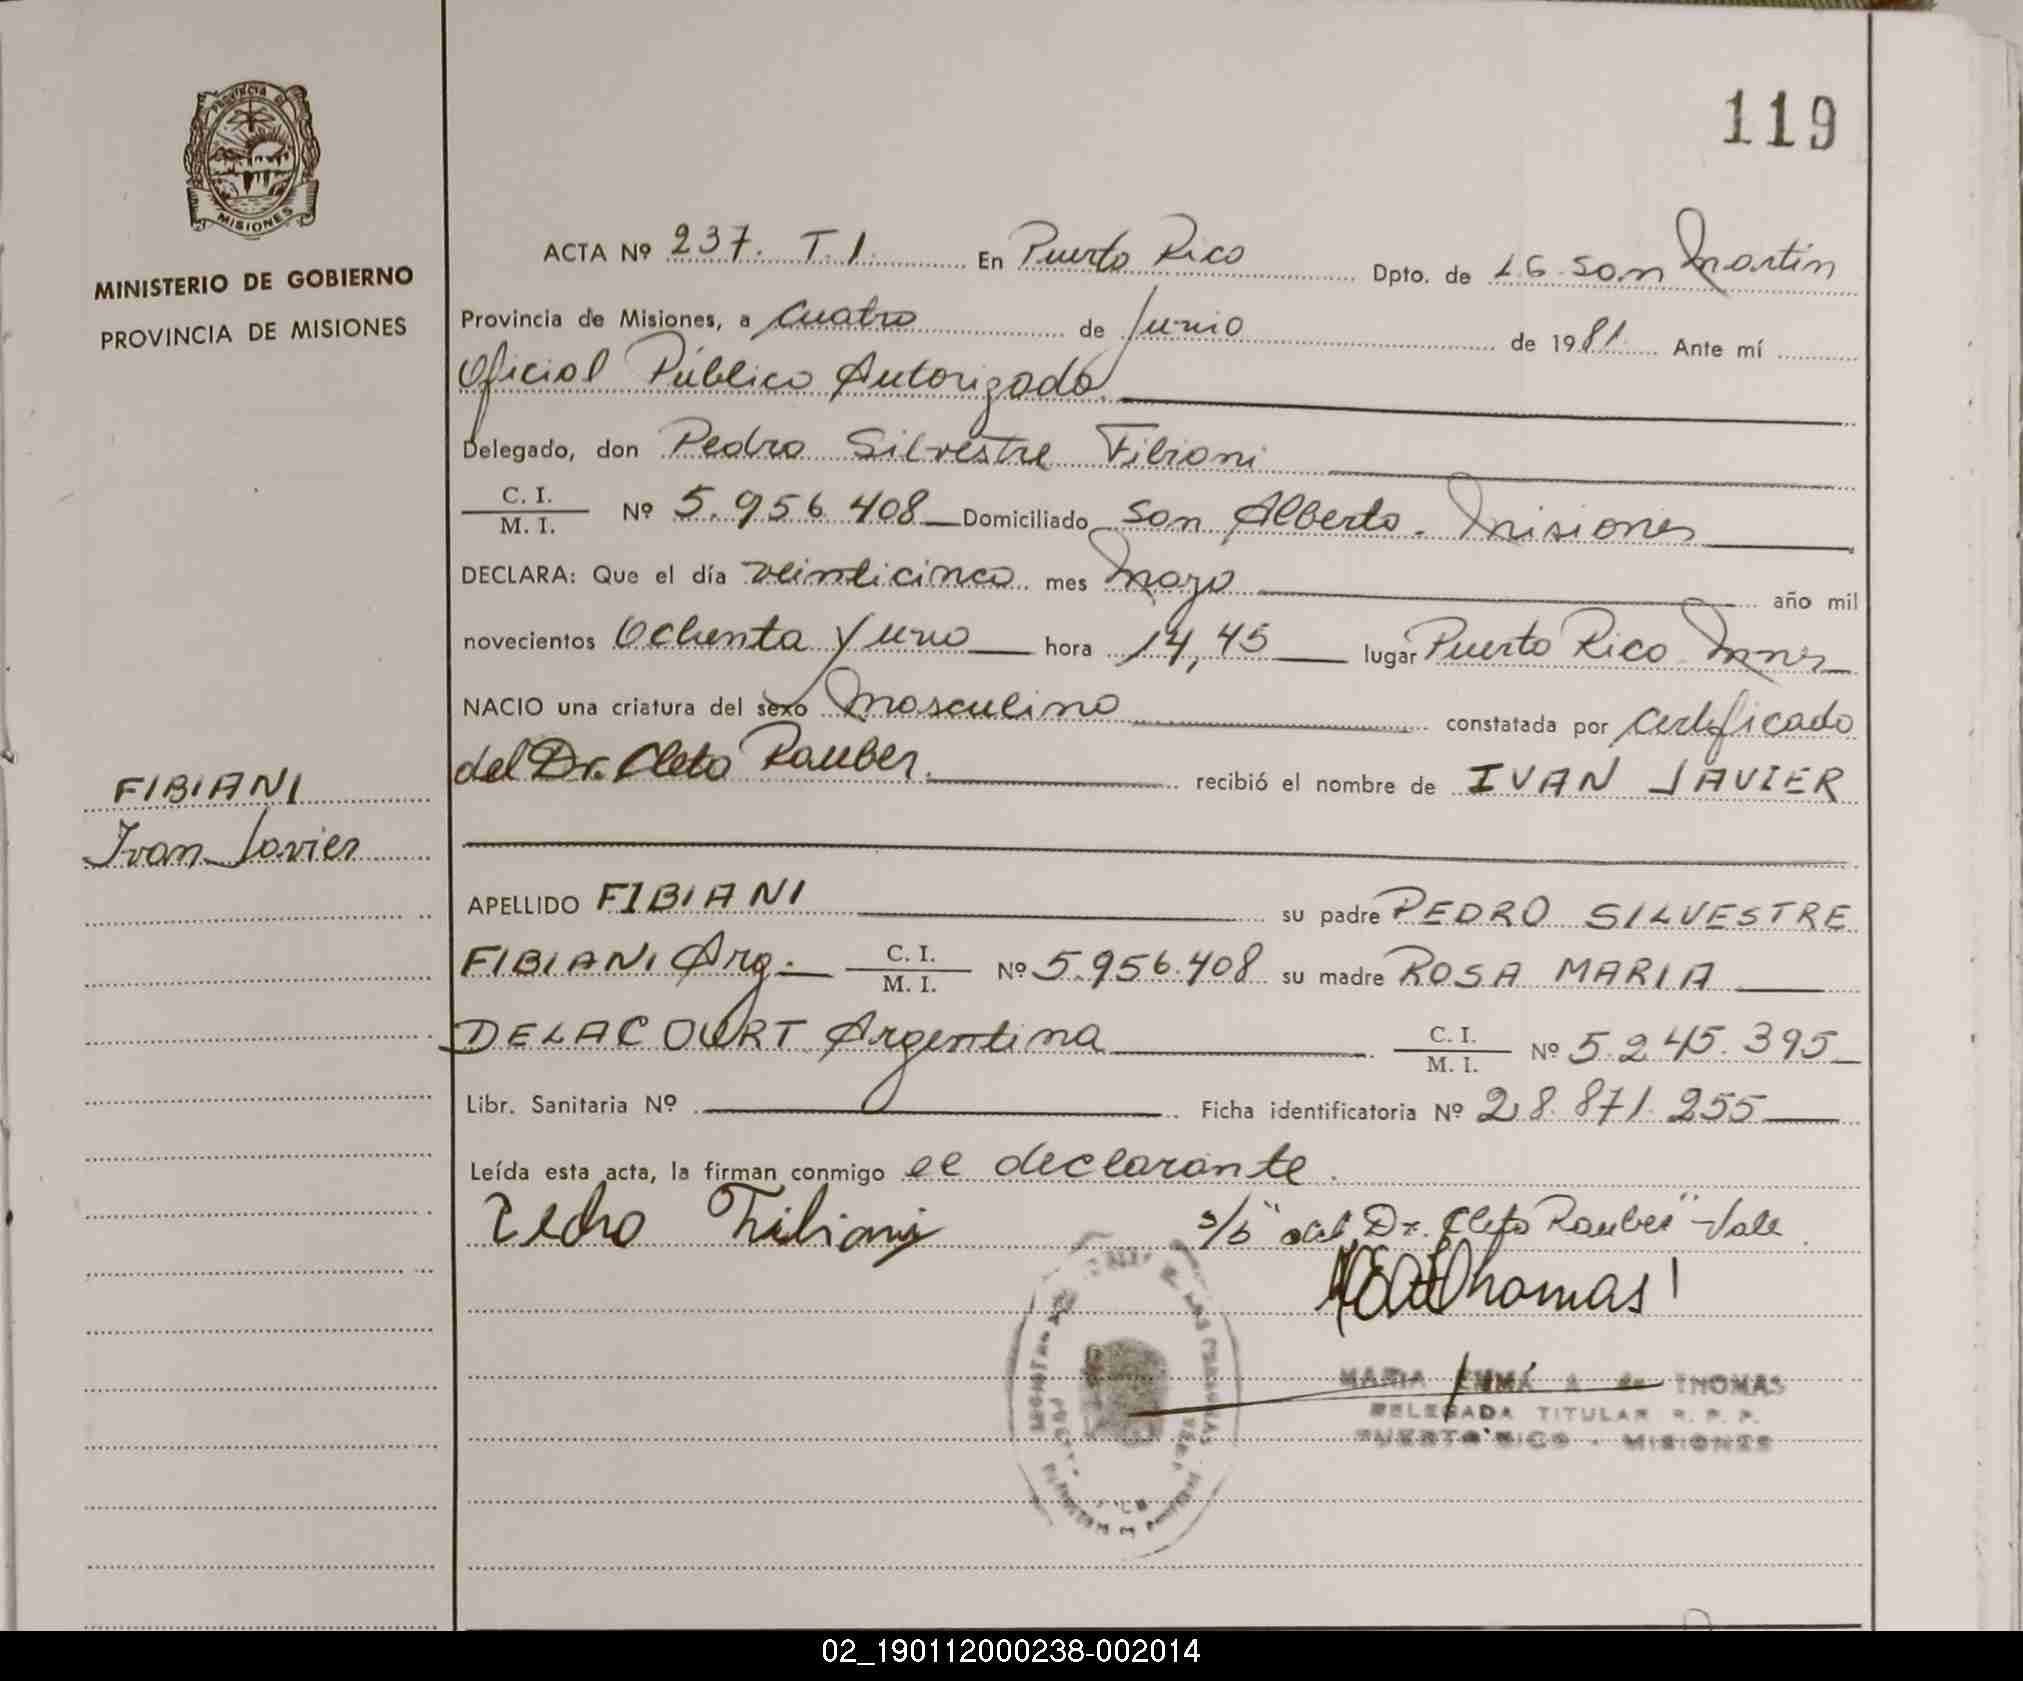 119
PROVINCIA DE
MISIONES
MINISTERIO DE GOBIERNO
PROVINCIA DE MISIONES
ACTA Nº 237. T. I. En Puerto Rico Dpto. de L.G. San Martin
Provincia de Misiones, a cuatro de Junio de 1981. Ante mí
Oficial Público Autorizado.
Delegado, don Pedro Silvestre Fibiani
C. I.
M. I. Nº 5.956.408 Domiciliado San Alberto. Misiones
DECLARA: Que el día veinticinco mes Mayo año mil
novecientos Ochenta y uno hora 14,45 lugar Puerto Rico Mnes
NACIO una criatura del sexo Masculino constatada por certificado
del Dr. Cleto Rauber. recibió el nombre de IVAN JAVIER
FIBIANI
Ivan Javier
APELLIDO FIBIANI su padre PEDRO SILVESTRE
FIBIANI Arg. C. I.
M. I. Nº 5.956.408 su madre ROSA MARIA
DELACOURT Argentina C. I.
M. I. Nº 5.245.395
Libr. Sanitaria Nº Ficha identificatoria Nº 28.871.255
Leída esta acta, la firman conmigo el declarante.
Pedro Fibiani
s/b "del Dr. Cleto Rauber" Vale.
Thomas
MARIA EMMA A. de THOMAS
DELEGADA TITULAR R. P. P.
PUERTO RICO - MISIONES
02_190112000238-002014